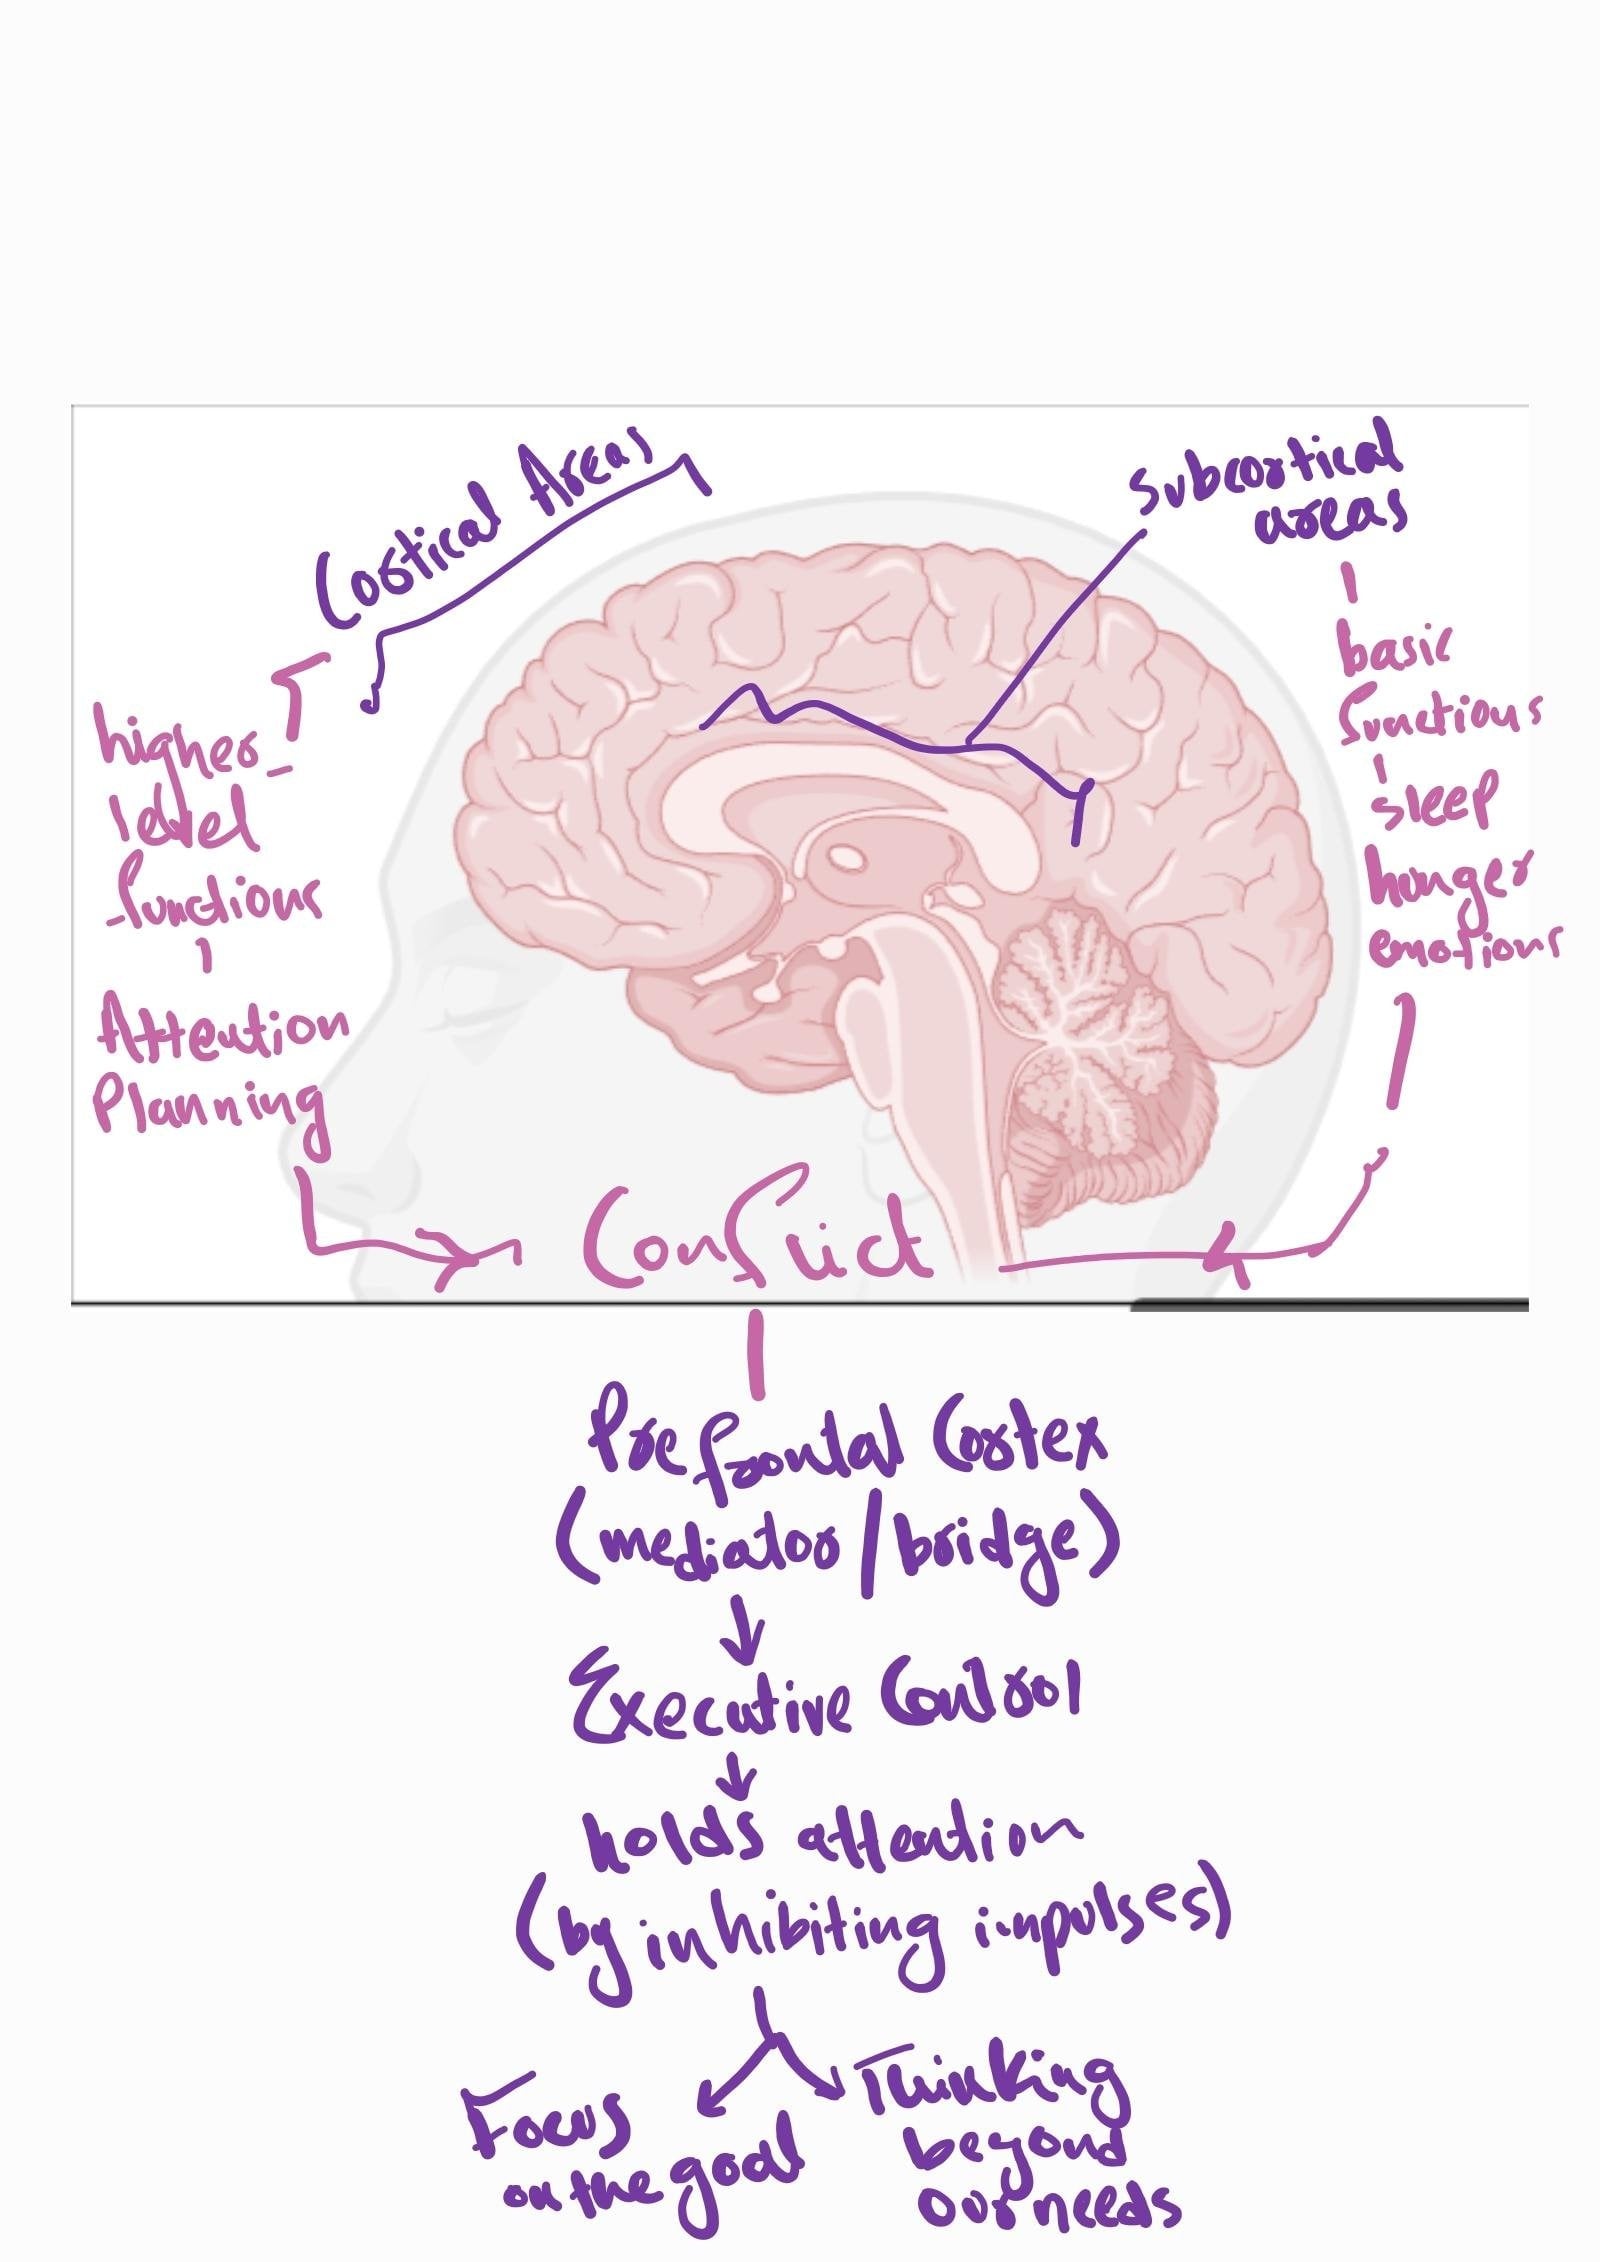 Cortical Areas
higher-
level
functions
Attention
Planning
Subcortical
areas
basic
functions
sleep
hunger
emotions
Conflict
Prefrontal Cortex
(mediator/bridge)
Executive Control
holds attention
(by inhibiting impulses)
Focus
on the goal
Thinking
beyond
our needs